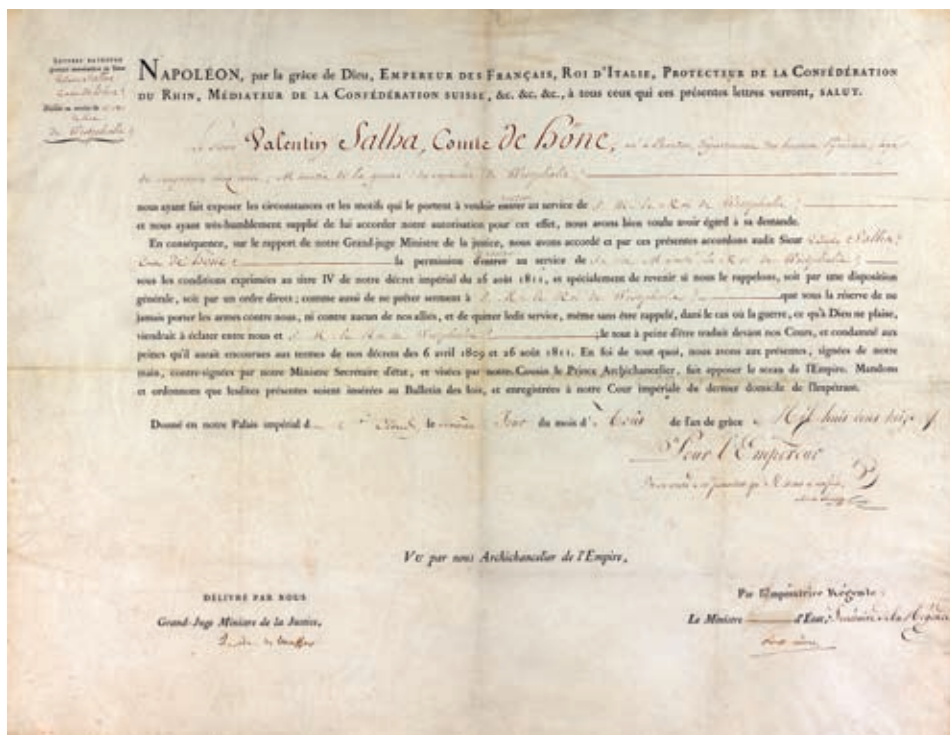 LETTRES PATENTES
de Westphalie
NAPOLÉON, par la grâce de Dieu, EMPEREUR DES FRANÇAIS, ROI D'ITALIE, PROTECTEUR DE LA CONFÉDÉRATION
DU RHIN, MÉDIATEUR DE LA CONFÉDÉRATION SUISSE, &c. &c. &c., à tous ceux qui ces présentes lettres verront, SALUT.
Le Sieur Valentin Salha, Comte de höne,
Ministre de la guerre du royaume de Westphalie
nous ayant fait exposer les circonstances et les motifs qui le portent à vouloir entrer au service de S. M. le Roi de Westphalie
et nous ayant très-humblement supplié de lui accorder notre autorisation pour cet effet, nous avons bien voulu avoir égard à sa demande.
En conséquence, sur le rapport de notre Grand-juge Ministre de la justice, nous avons accordé et par ces présentes accordons audit Sieur Salha,
Comte de höne la permission d'entrer au service de Sa Majesté le Roi de Westphalie
sous les conditions exprimées au titre IV de notre décret impérial du 26 août 1811, et spécialement de revenir si nous le rappelons, soit par une disposition
générale, soit par un ordre direct; comme aussi de ne prêter serment à S. M. le Roi de Westphalie que sous la réserve de ne
jamais porter les armes contre nous, ni contre aucun de nos alliés, et de quitter ledit service, même sans être rappelé, dans le cas où la guerre, ce qu'à Dieu ne plaise,
viendrait à éclater entre nous et S. M. le Roi de Westphalie; le tout à peine d'être traduit devant nos Cours, et condamné aux
peines qu'il aurait encourues aux termes de nos décrets des 6 avril 1809 et 26 août 1811. En foi de tout quoi, nous avons aux présentes, signées de notre
main, contre-signées par notre Ministre Secrétaire d'état, et visées par notre Cousin le Prince Archichancelier, fait apposer le sceau de l'Empire. Mandons
et ordonnons que lesdites présentes soient insérées au Bulletin des lois, et enregistrées à notre Cour impériale du dernier domicile de l'Impétrant.
Donné en notre Palais impérial de St Cloud, le Jour du mois d'Août de l'an de grâce Mil huit cent treize
Pour l'Empereur
Vu par nous Archichancelier de l'Empire,
DÉLIVRÉ PAR NOUS
Grand-Juge Ministre de la Justice,
Par l'Impératrice Régente:
Le Ministre d'État, Secrétaire de la Régence